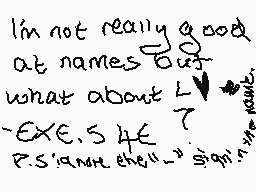 I'm not really good
at names but
what about L ♥ ?
-EXE.S4E
P.S ignore the "-" sign in the name.